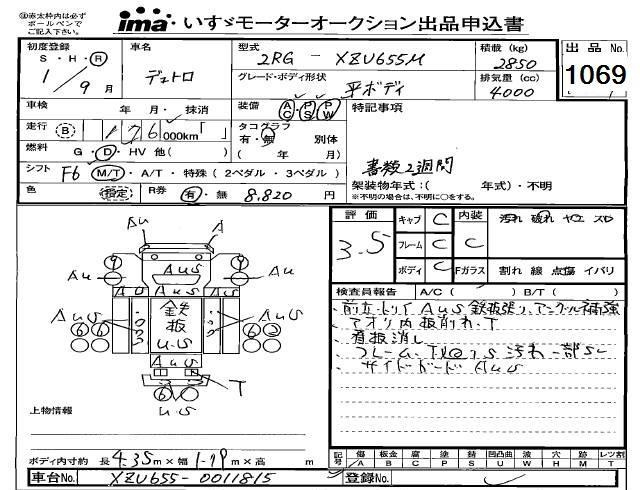 ㊟赤太枠内は必ず
ボールペンで
ご記入下さい。
ima いすゞモーターオークション出品申込書
初度登録 車名 型式 2RG - XZU655M 積載 (kg) 2850 出品 No. 1069
S・H・R
1/9月 デュトロ グレード・ボディ形状 平ボディ 排気量 (cc) 4000
車検 年 月・抹消 装備 AC PS PW 特記事項
走行 B 176 000km「 」 タコグラフ 有・無 別体 ( 年 月)
燃料 G・D・HV 他( )
書類2週間
シフト F6 M/T・A/T・特殊(2ペダル・3ペダル) 架装物年式:( 年式)・不明
※不明の場合は、不明に○をする。
色 指定 R券 有・無 8,820 円
評価 3.5 キャブ C 内装 C 汚れ 破れ ヤエ スレ
フレーム C
ボディ C Fガラス 割れ 線 点傷 イバリ
検査員報告 A/C ( ) B/T ( )
AuS 鉄板張り、アングル補強
アオリ内板削れ、T
看板消し
フレーム、
サイドガード AuS
Au A
9 9
Au AuS Au
AuS AuS
AuS 鉄板 u.s AuS
T
u.s
上物情報
ボディ内寸約 長 4.35m×幅 1.79m×高 m
記号 傷 A 板金 B 腐 C 塗 P サビ S 凹凸曲 U 波 W 穴 H 無 M レツ割 T
車台No. XZU655-0011815 登録No.